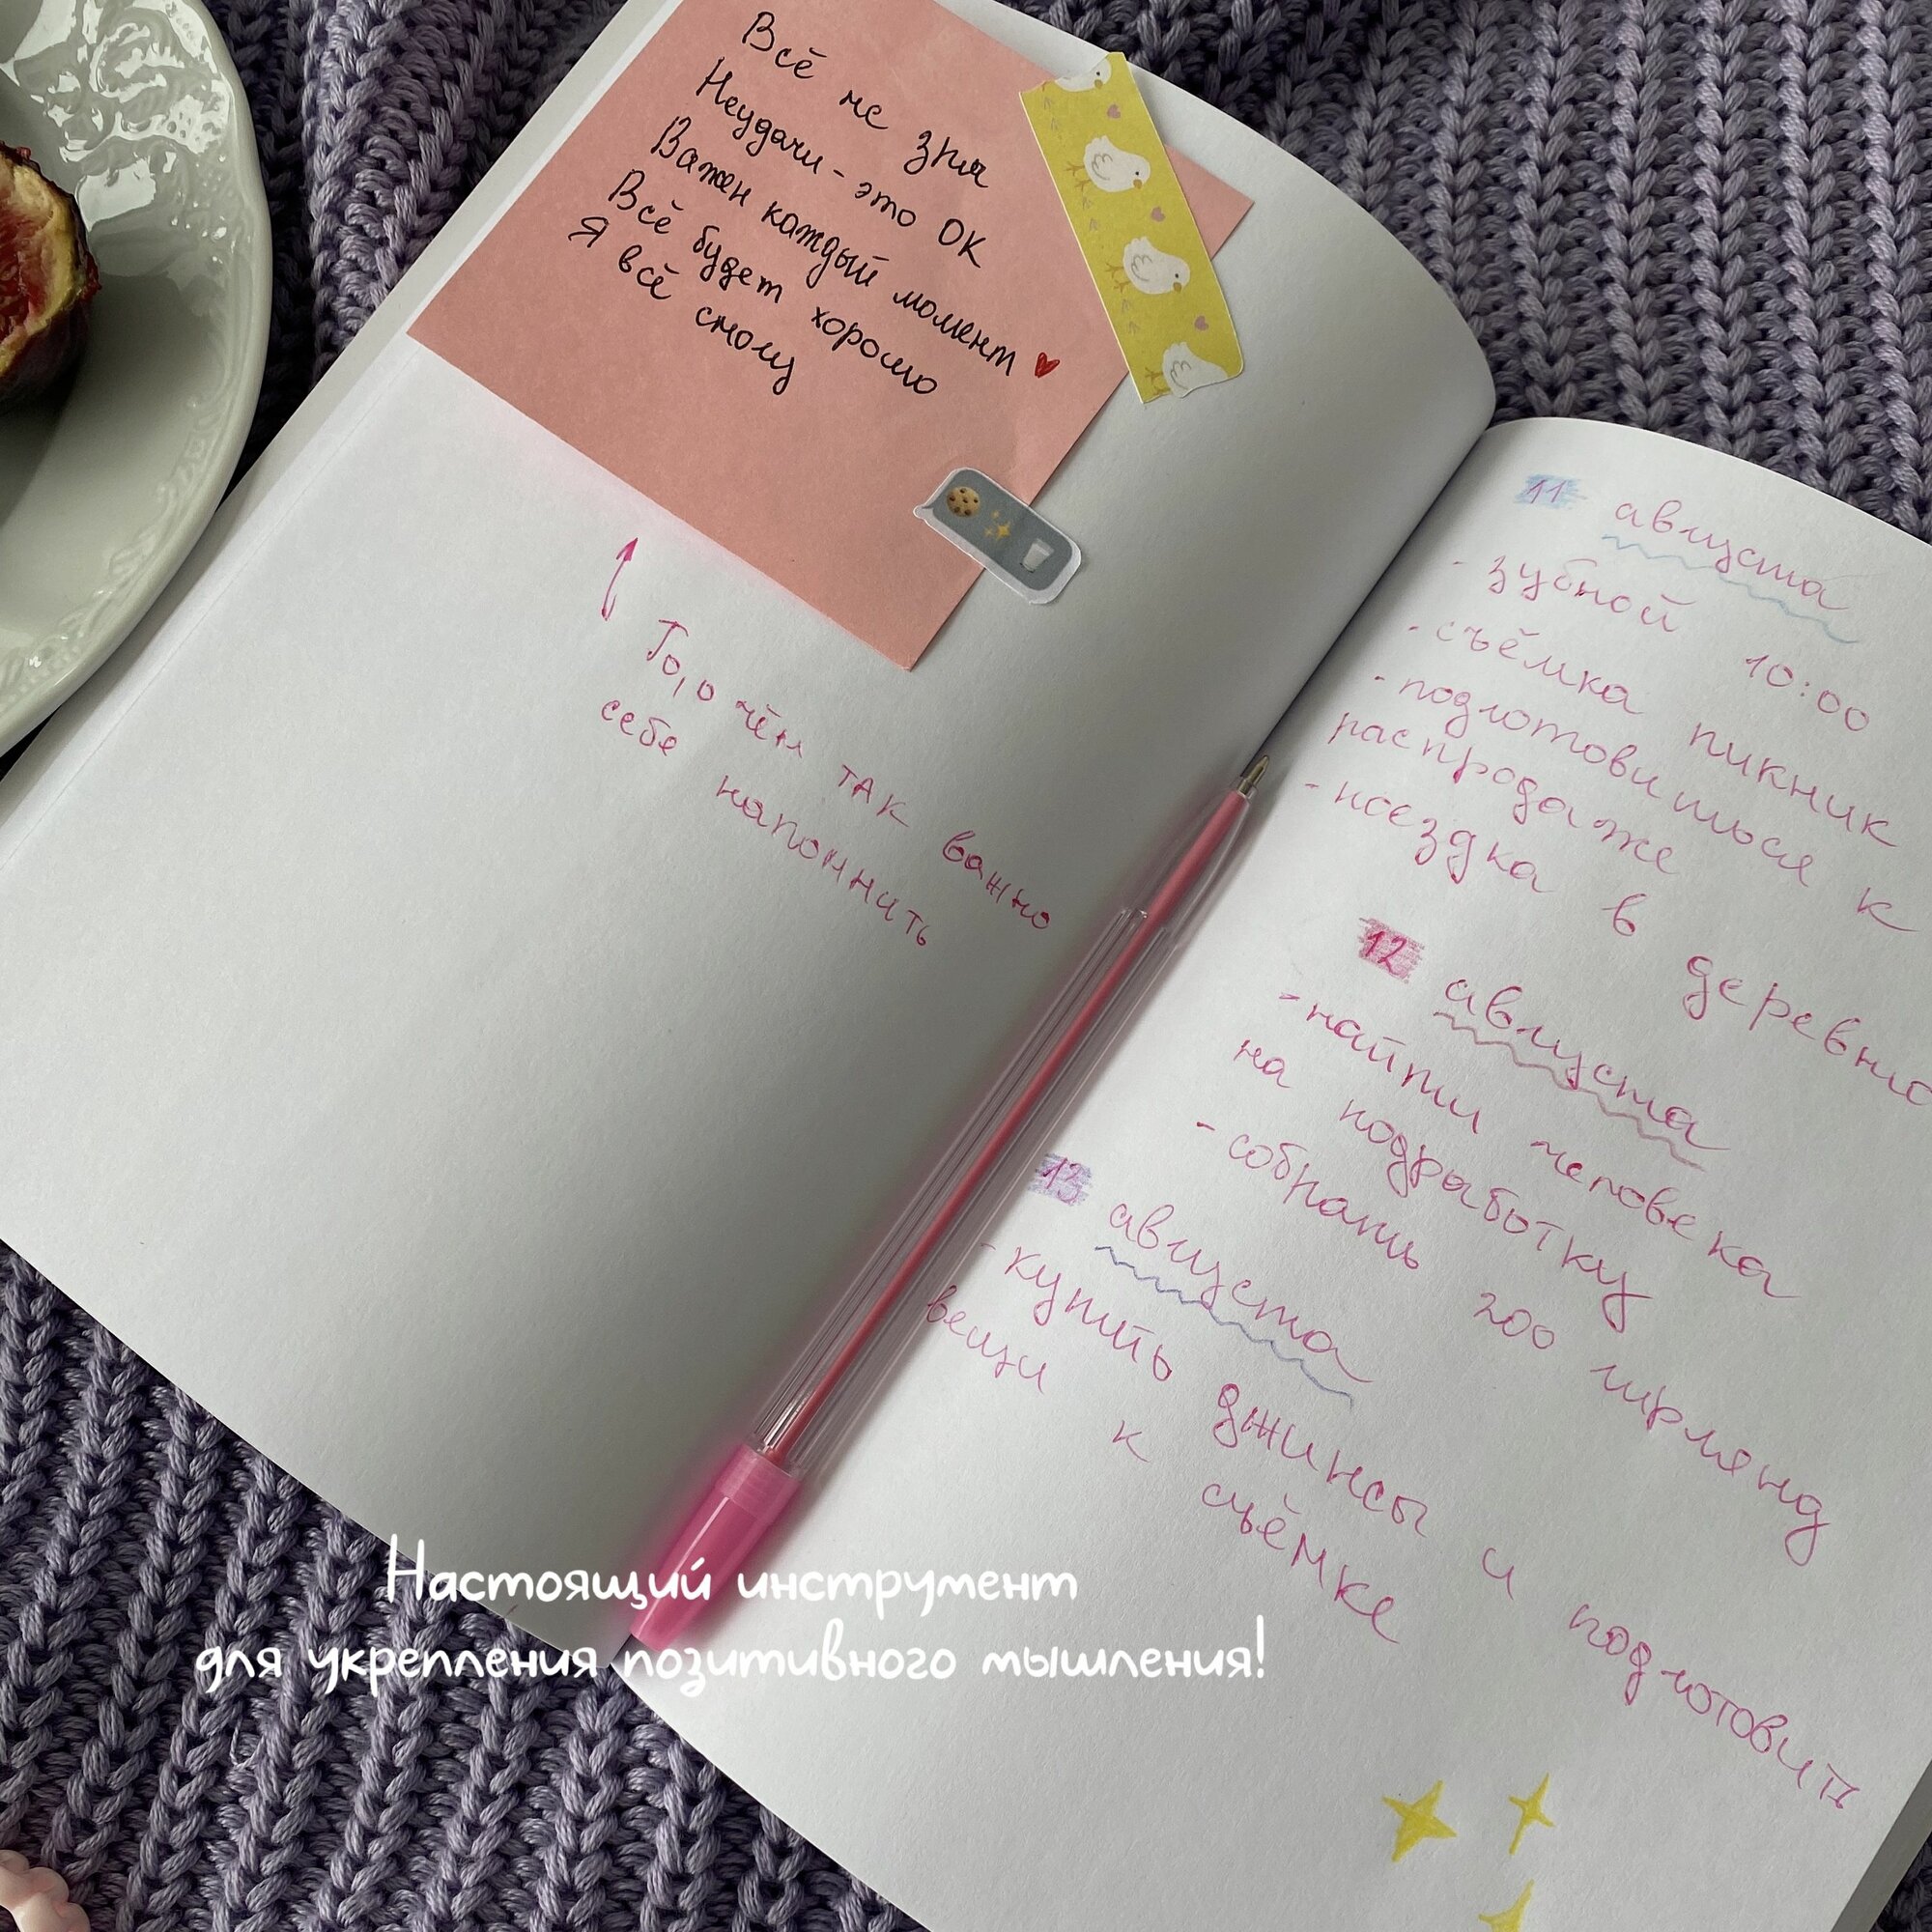 Всё не зря
Неудачи - это ОК
Важен каждый момент
Всё будет хорошо
Я всё смогу
То, о чём ТАК важно
себе напомнить
11 августа
- зубной 10:00
- съёмка пикник
- подготовиться к
распродаже
- поездка в деревню
12 августа
- найти человека
на подработку
- собрать 200 гирлянд
13 августа
- купить джинсы и подготовить
вещи к съёмке
Настоящий инструмент
для укрепления позитивного мышления!